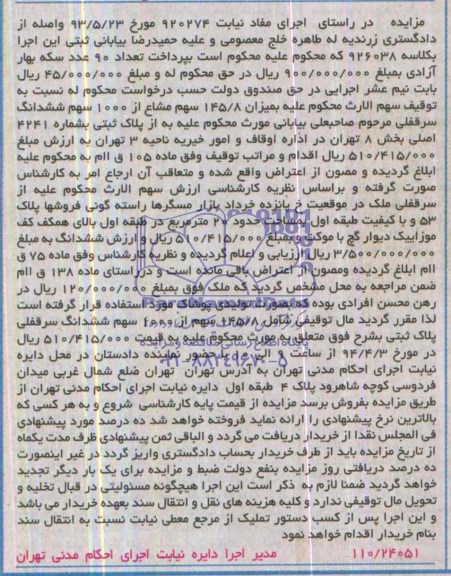 مزایده در راستای اجرای مفاد نیابت ۹۲۰۲۷۴ مورخ ۹۳/۵/۲۳ واصله از
دادگستری زرندیه له طاهره خلج معصومی و علیه حمیدرضا بیابانی ثبتی این اجرا
بکلاسه ۹۲۶۰۳۸ که محکوم علیه محکوم است بپرداخت تعداد ۹۰ عدد سکه بهار
آزادی بمبلغ ۹۰۰/۰۰۰/۰۰۰ ریال در حق محکوم له و مبلغ ۴۵/۰۰۰/۰۰۰ ریال
بابت نیم عشر اجرایی در حق صندوق دولت حسب درخواست محکوم له نسبت به
توقیف سهم الارث محکوم علیه بمیزان ۱۴۵/۸ سهم مشاع از ۱۰۰۰ سهم ششدانگ
سرقفلی مرحوم صاحبعلی بیابانی مورث محکوم علیه به از پلاک ثبتی بشماره ۴۲۴۱
اصلی بخش ۸ تهران در اداره اوقاف و امور خیریه ناحیه ۳ تهران به ارزش مبلغ
۵۱۰/۴۱۵/۰۰۰ ریال اقدام و مراتب توقیف وفق ماده ۱۰۵ ق اام به محکوم علیه
ابلاغ گردیده و مصون از اعتراض واقع شده و متعاقب آن ارجاع امر به کارشناس
صورت گرفته و براساس نظریه کارشناسی ارزش سهم الارث محکوم علیه از
سرقفلی ملک در موقعیت خ پانزده خرداد بازار مسگرها راسته گونی فروشها پلاک
۵۳ و با کیفیت طبقه اول بمساحت حدود ۲۰ مترمربع در طبقه اول بالای همکف کف
موزاییک دیوار گچ با موکت و بمبلغ ۵۱۰/۴۱۵/۰۰۰ ریال و ارزش ششدانگ به مبلغ
۳/۵۰۰/۰۰۰/۰۰۰ ریال ارزیابی و اعلام گردیده و نظریه کارشناس وفق ماده ۷۵ ق
اام ابلاغ گردیده ومصون از اعتراض باقی مانده است و در راستای ماده ۱۳۸ ق اام
ضمن مراجعه به محل مشخص گردید که ملک فوق بمبلغ ۱۲۰/۰۰۰/۰۰۰ ریال در
رهن محسن افرادی بوده که بصورت تولیدی پوشاک مورد استفاده قرار گرفته است
لذا مقرر گردید مال توقیفی شامل ۱۴۵/۸ سهم از ۱۰۰۰ سهم ششدانگ سرقفلی
پلاک ثبتی بشرح فوق متعلق به مورث محکوم علیه به قیمت ۵۱۰/۴۱۵/۰۰۰ ریال
در مورخ ۹۴/۴/۳ از ساعت الی با حضور نماینده دادستان در محل دایره
نیابت اجرای احکام مدنی تهران به آدرس تهران تهران ضلع شمال غربی میدان
فردوسی کوچه شاهرود پلاک ۴ طبقه اول دایره نیابت اجرای احکام مدنی تهران از
طریق مزایده بفروش برسد مزایده از قیمت پایه کارشناسی شروع و به هر کسی که
بالاترین نرخ پیشنهادی را ارائه نماید فروخته خواهد شد ده درصد مورد پیشنهادی
فی المجلس نقدا از خریدار دریافت می گردد و الباقی ثمن پیشنهادی ظرف مدت یکماه
از تاریخ مزایده باید از طرف خریدار بحساب دادگستری واریز گردد در غیر اینصورت
ده درصد دریافتی روز مزایده بنفع دولت ضبط و مزایده برای یک بار دیگر تجدید
خواهد گردید ضمنا لازم به ذکر است این اجرا هیچگونه مسئولیتی در قبال تخلیه و
تحویل مال توقیفی ندارد و کلیه هزینه های نقل و انتقال سند بعهده خریدار می باشد
و این اجرا پس از کسب دستور تملیک از مرجع معطی نیابت نسبت به انتقال سند
بنام خریدار اقدام خواهد نمود
۱۱۰/۲۴۰۵۱ مدیر اجرا دایره نیابت اجرای احکام مدنی تهران